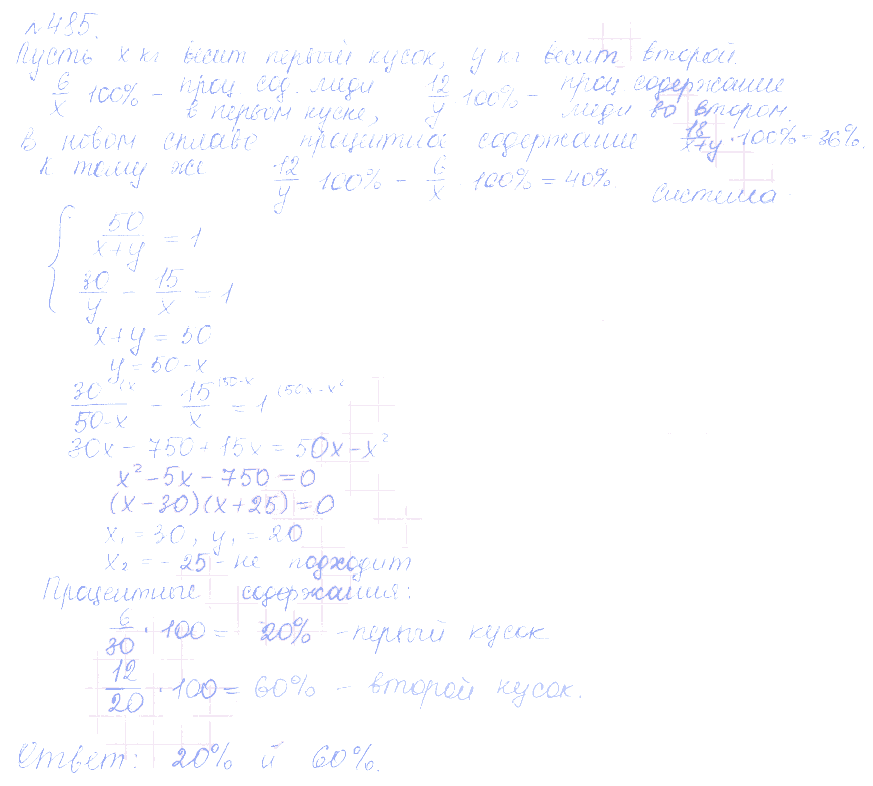 №485.
Пусть x кг весит первый кусок, y кг весит второй.
6/x · 100% – проц. сод. меди в первом куске, 12/y · 100% – проц содержание меди во втором.
в новом сплаве процентное содержание 18/(x+y) · 100% = 36%.
К тому же 12/y · 100% – 6/x · 100% = 40%.
система
{ 50/(x+y) = 1
30/y – 15/x = 1
x+y = 50
y = 50-x
30/(50-x) – 15/x = 1
30x – 750 + 15x = 50x – x²
x² – 5x – 750 = 0
(x – 30)(x + 25) = 0
x₁ = 30, y₁ = 20
x₂ = – 25 – не подходит
Процентные содержания:
6/30 · 100 = 20% – первый кусок.
12/20 · 100 = 60% – второй кусок.
Ответ: 20% и 60%.